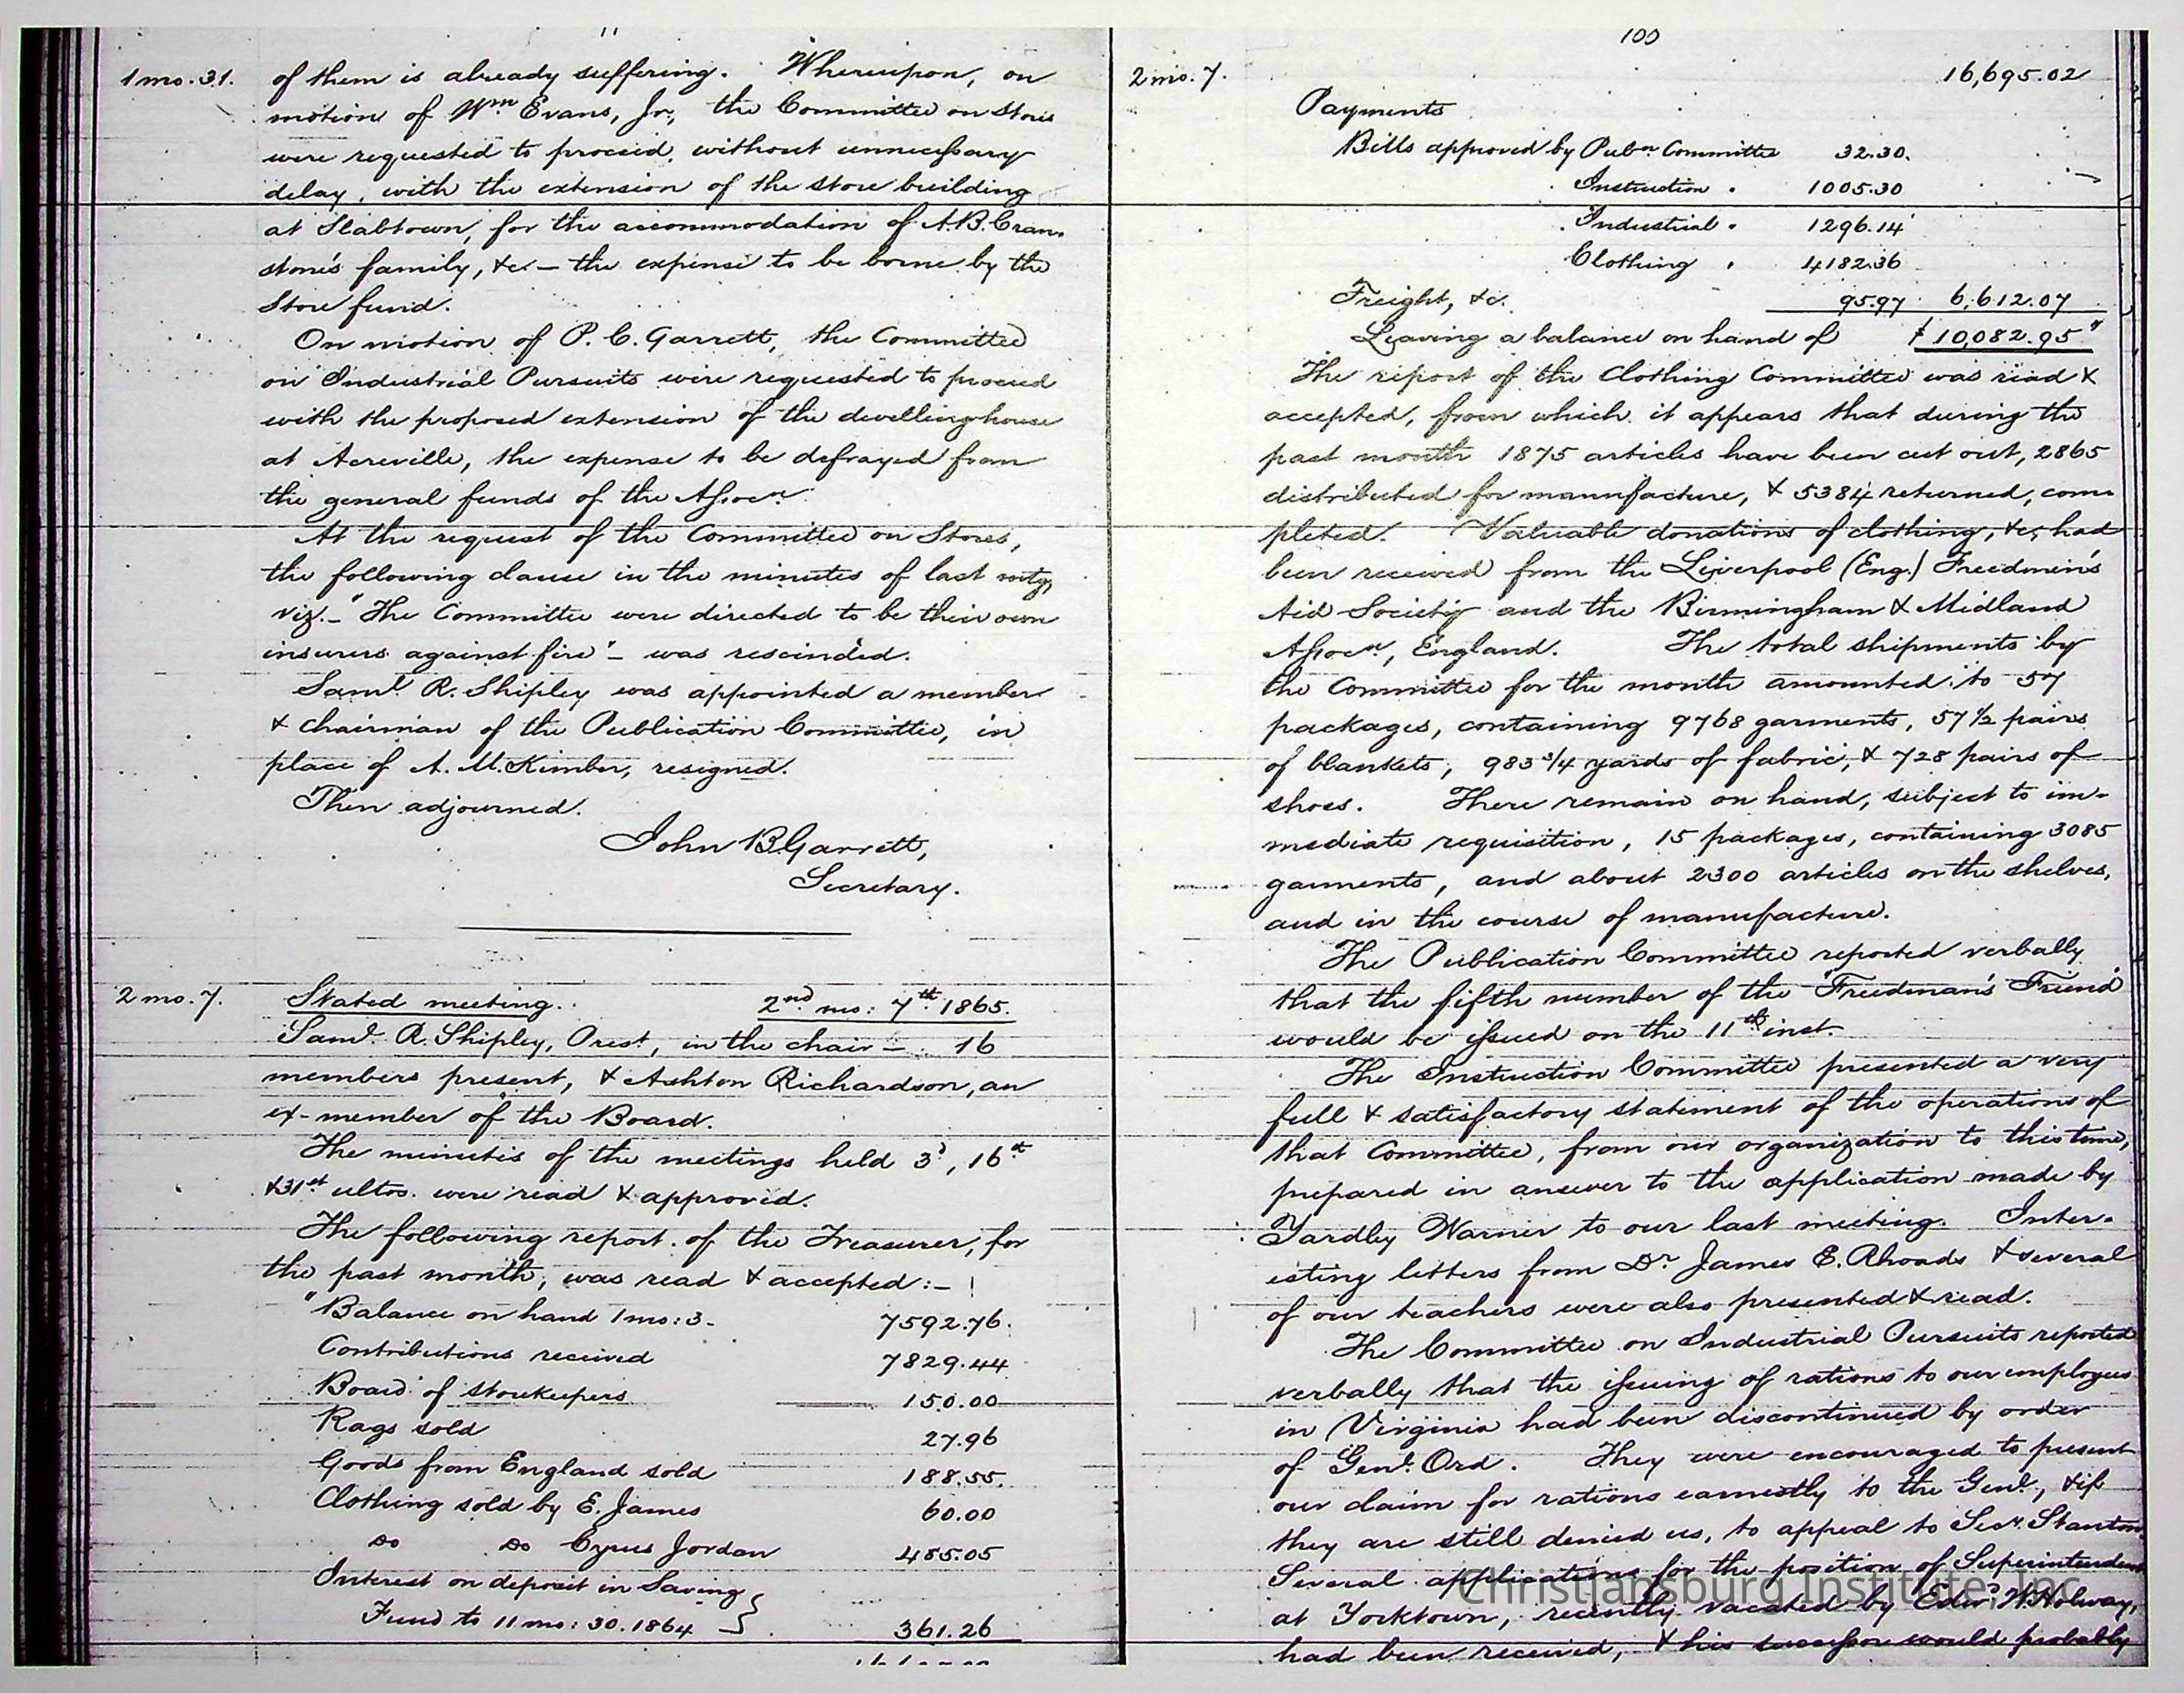 1 mo. 31.
of them is already suffering. Whereupon, on
motion of Wm Evans, Jr., the Committee on Stores
were requested to proceed, without unnecessary
delay, with the extension of the store building
at Slabtown, for the accommodation of A.B. Cran-
stone's family, &c — the expense to be borne by the
Store fund.
On motion of P. C. Garrett, the Committee
on Industrial Pursuits were requested to proceed
with the proposed extension of the dwelling house
at Acreville, the expense to be defrayed from
the general funds of the Assocn.
At the request of the Committee on Stores,
the following clause in the minutes of last mtg,
viz. - "The Committee were directed to be their own
insurers against fire" - was rescinded.
Saml. R. Shipley was appointed a member
& chairman of the Publication Committee, in
place of A. M. Kimber, resigned.
Then adjourned.
John B. Garrett,
Secretary.
2 mo. 7.
Stated meeting. 2nd mo: 7th 1865.
Saml. R. Shipley, Prest, in the chair — 16
members present, & Ashton Richardson, an
ex-member of the Board.
The minutes of the meetings held 3d, 16th
& 31st ultos. were read & approved.
The following report of the Treasurer, for
the past month, was read & accepted: -
"Balance on hand 1 mo: 3. 7592.76.
Contributions received 7829.44
Board of storekeepers 150.00
Rags sold 27.96
Goods from England sold 188.55.
Clothing sold by E. James 60.00
Do Do Cyrus Jordan 485.05
Interest on deposit in Saving
Fund to 11 mo: 30. 1864 } 361.26
100
2 mo. 7.
16,695.02
Payments
Bills approved by Pubn Committee 32.30.
Instruction " 1005.30
Industrial " 1296.14
Clothing " 4182.36
Freight, &c. 95.97 6,612.07
Leaving a balance on hand of $10,082.95"
The report of the Clothing Committee was read &
accepted, from which it appears that during the
past month 1875 articles have been cut out, 2865
distributed for mannufacture, & 5384 returned, com-
pleted. Valuable donations of clothing, &c, had
been received from the Liverpool (Eng.) Freedmen's
Aid Society and the Birmingham & Midland
Assocn, England. The total shipments by
the Committee for the month amounted to 57
packages, containing 9768 garments, 57 1/2 pairs
of blankets, 983 3/4 yards of fabric, & 728 pairs of
shoes. There remain on hand, subject to im-
mediate requisition, 15 packages, containing 3085
garments, and about 2300 articles on the shelves,
and in the course of manufacture.
The Publication Committee reported verbally
that the fifth number of the "Freedman's Friend"
would be issued on the 11th inst.
The Instruction Committee presented a very
full & satisfactory statement of the operations of
that Committee, from our organization to this time,
prepared in answer to the application made by
Yardley Warner to our last meeting. Inter-
esting letters from Dr James E. Rhoads & several
of our teachers were also presented & read.
The Committee on Industrial Pursuits reported
verbally that the issuing of rations to our employees
in Virginia had been discontinued by order
of Genl. Ord. They were encouraged to present
our claim for rations earnestly to the Genl., & if
they are still denied us, to appeal to Secy. Stanton.
Several applications for the position of Superintendent
at Yorktown, recently vacated by Edwd. W. Holway,
had been received, & his successor would probably
Christiansburg Institute, Inc